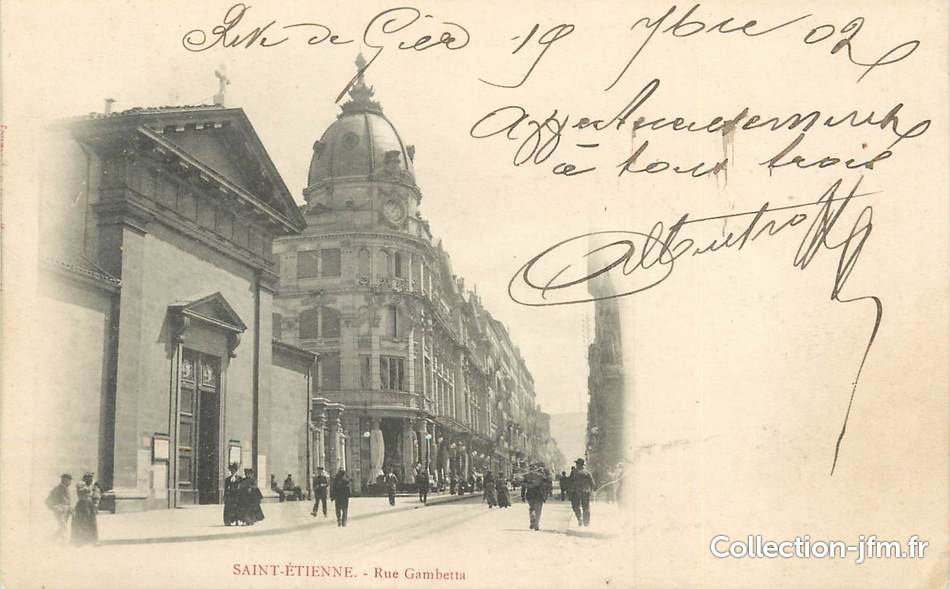 Rive de Gier 19 7bre 02
affectueusement
à tous trois
SAINT-ÉTIENNE. - Rue Gambetta
Collection-jfm.fr